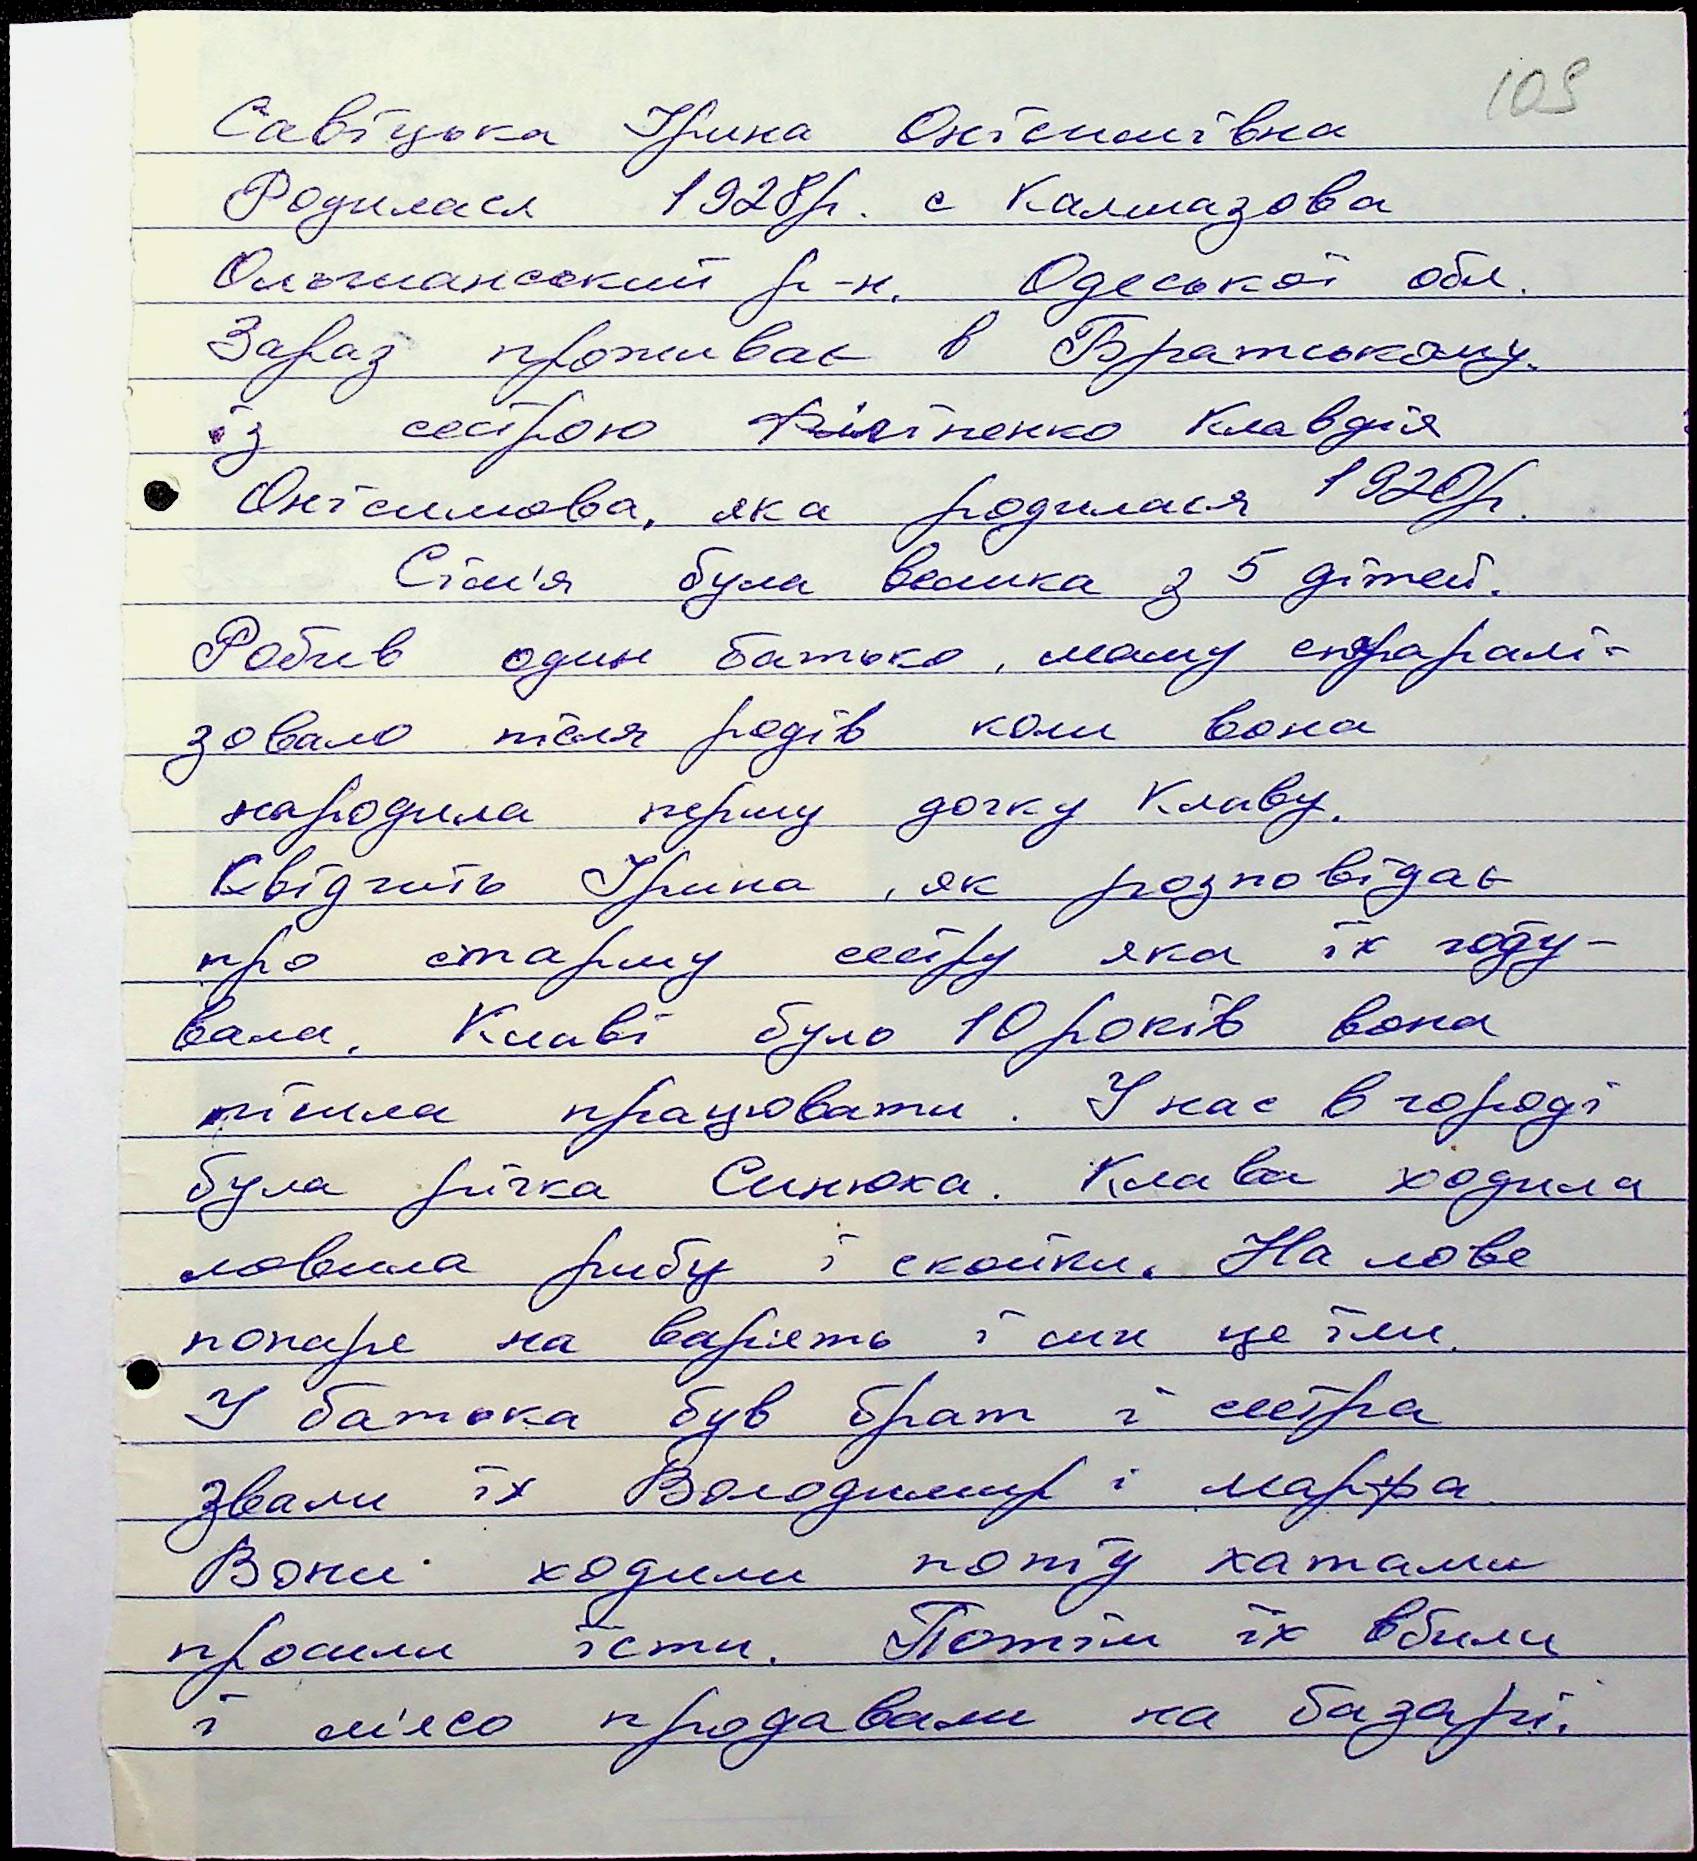 109
Савіцька Ірина Онісимівна
Родилася 1928р. с Калмазова
Ольшанський р-н. Одеської обл.
Зараз проживає в Братському.
із сестрою Філіпенко Клавдія
Онісимова, яка родилася 1920р.
Сім'я була велика з 5 дітей.
Робив один батько, маму спаралі-
зовало після родів коли вона
народила першу дочку Клаву.
Свідчить Ірина, як розповідає
про старшу сестру яка їх году-
вала. Клаві було 10 років вона
пішла працювати. У нас в городі
була річка Синюха. Клава ходила
ловила рибу і скойки. На лове
попаре на варять і ми це їли.
У батька був брат і сестра
звали їх Володимир і марфа
Вони ходили попід хатами
просили їсти. Потім їх вбили
і м'ясо продавали на базарі.